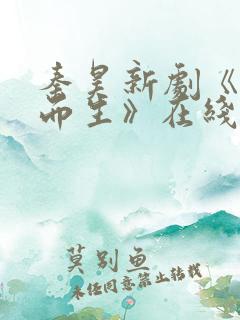 秦昊新劇《
而生》在綫
莫别鱼
未经同意禁止转载